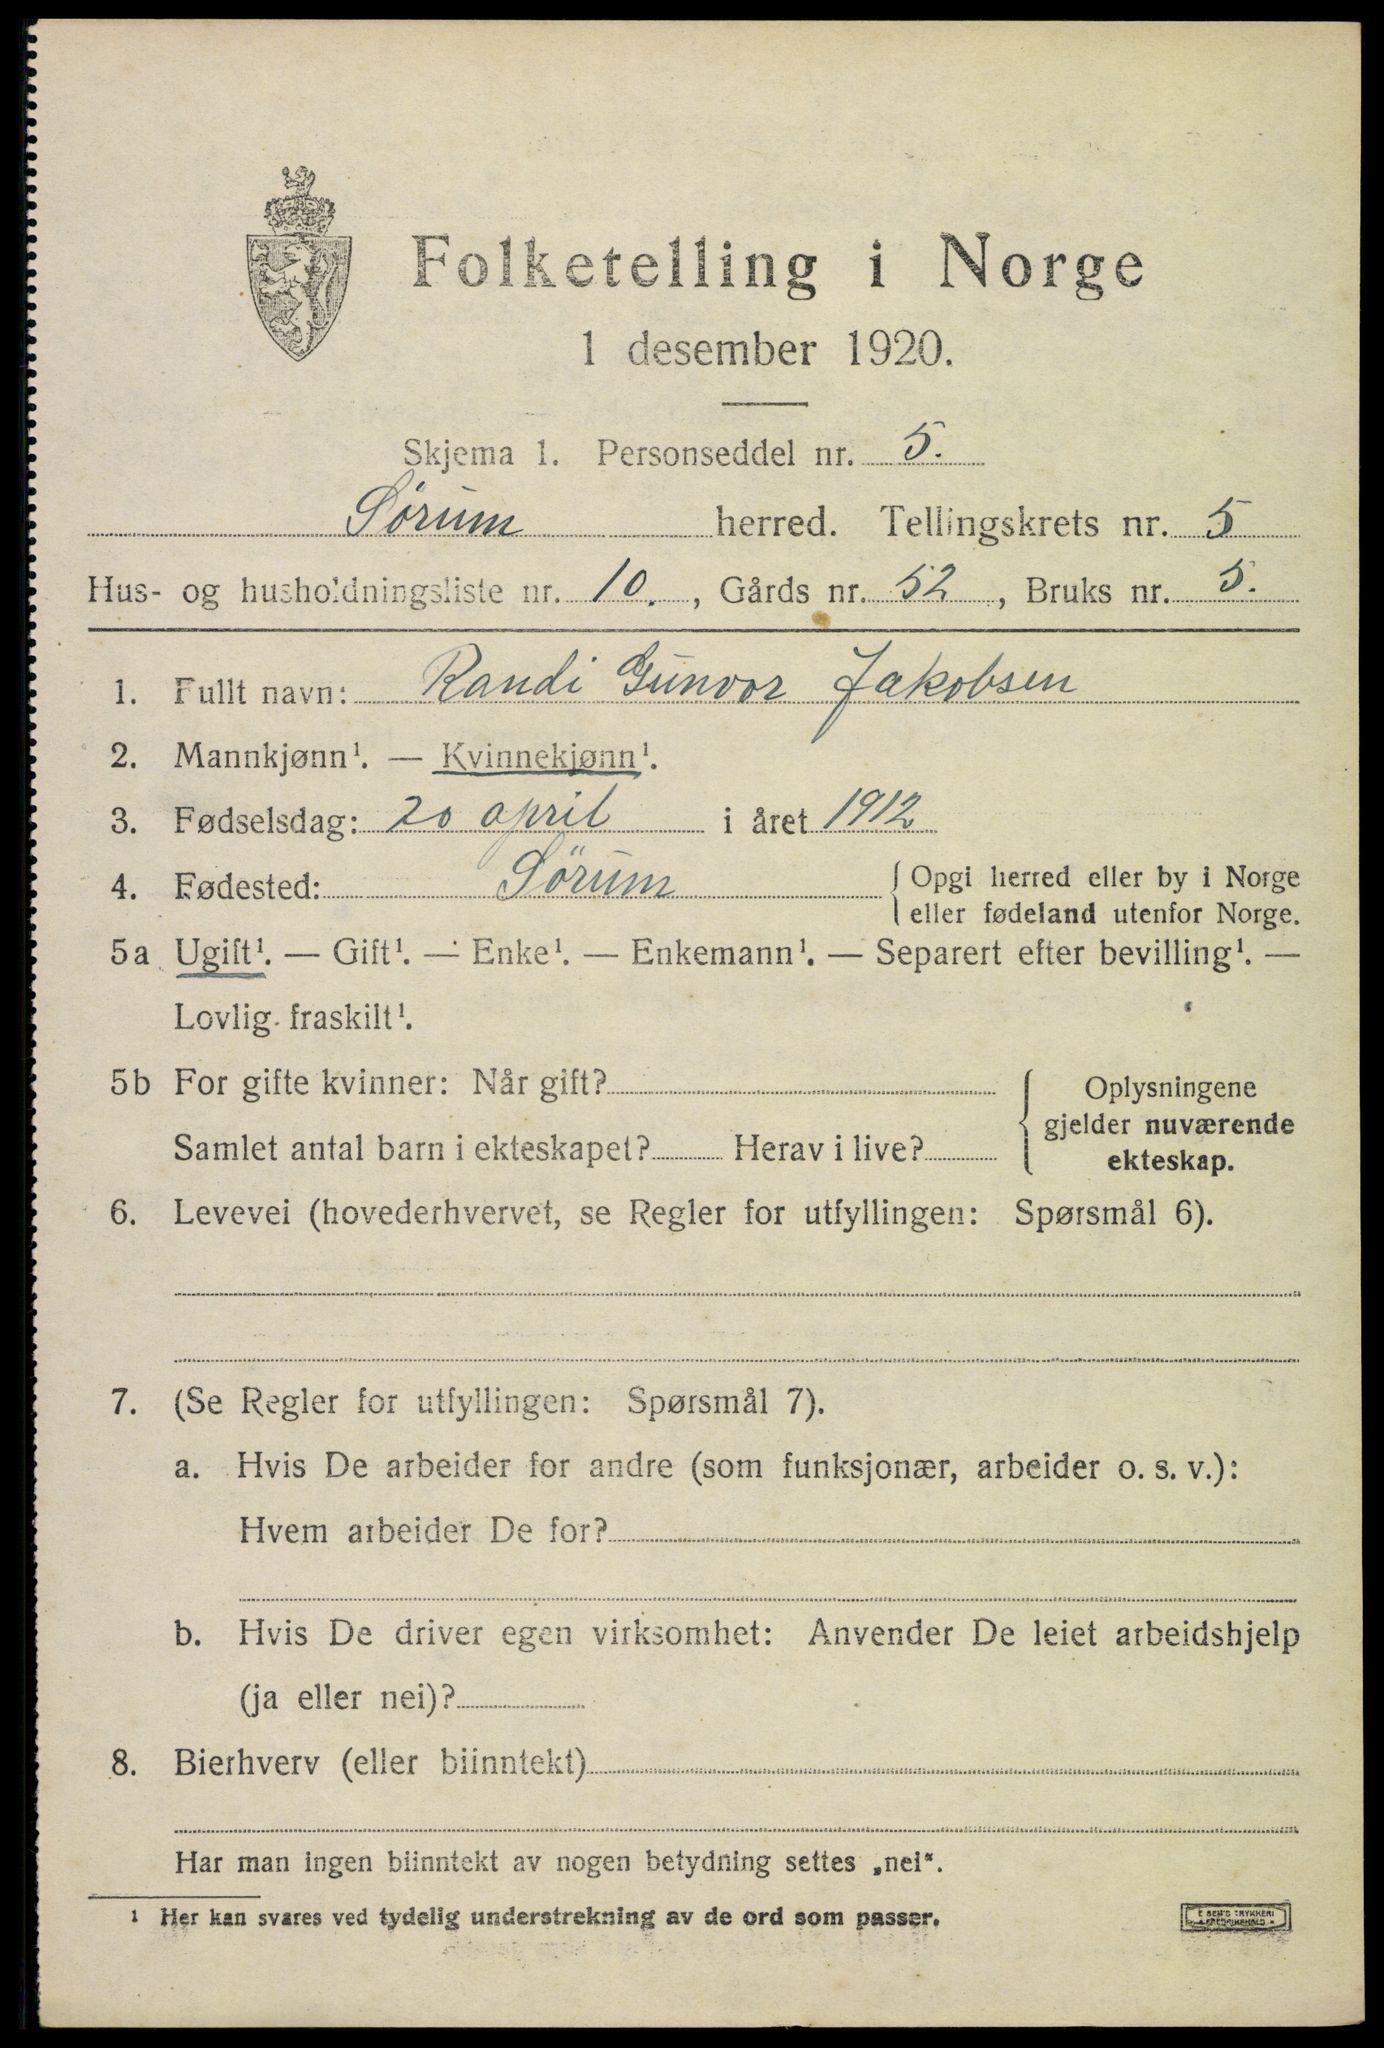 Folketelling i Norge
1 desember 1920.
Skjema 1. Personseddel nr. 5.
Sørum herred. Tellingskrets nr. 5
Hus- og husholdningsliste nr. 10., Gårds nr. 52, Bruks nr. 5.
1. Fullt navn: Randi Gunvor Jakobsen
2. Mannkjønn¹. — Kvinnekjønn¹.
3. Fødselsdag: 20 april i året 1912
4. Fødested: Sørum { Opgi herred eller by i Norge
eller fødeland utenfor Norge.
5a Ugift¹. — Gift¹. — Enke¹. — Enkemann¹. — Separert efter bevilling¹. —
Lovlig fraskilt¹.
5b For gifte kvinner: Når gift?
Samlet antal barn i ekteskapet? Herav i live?
{ Oplysningene
gjelder nuværende
ekteskap.
6. Levevei (hovederhvervet, se Regler for utfyllingen: Spørsmål 6).
7. (Se Regler for utfyllingen: Spørsmål 7).
a. Hvis De arbeider for andre (som funksjonær, arbeider o. s. v.):
Hvem arbeider De for?
b. Hvis De driver egen virksomhet: Anvender De leiet arbeidshjelp
(ja eller nei)?
8. Bierhverv (eller biinntekt)
Har man ingen biinntekt av nogen betydning settes „nei“.
¹ Her kan svares ved tydelig understrekning av de ord som passer.
E SEM'S TRYKKERI
FREDRIKSHALD